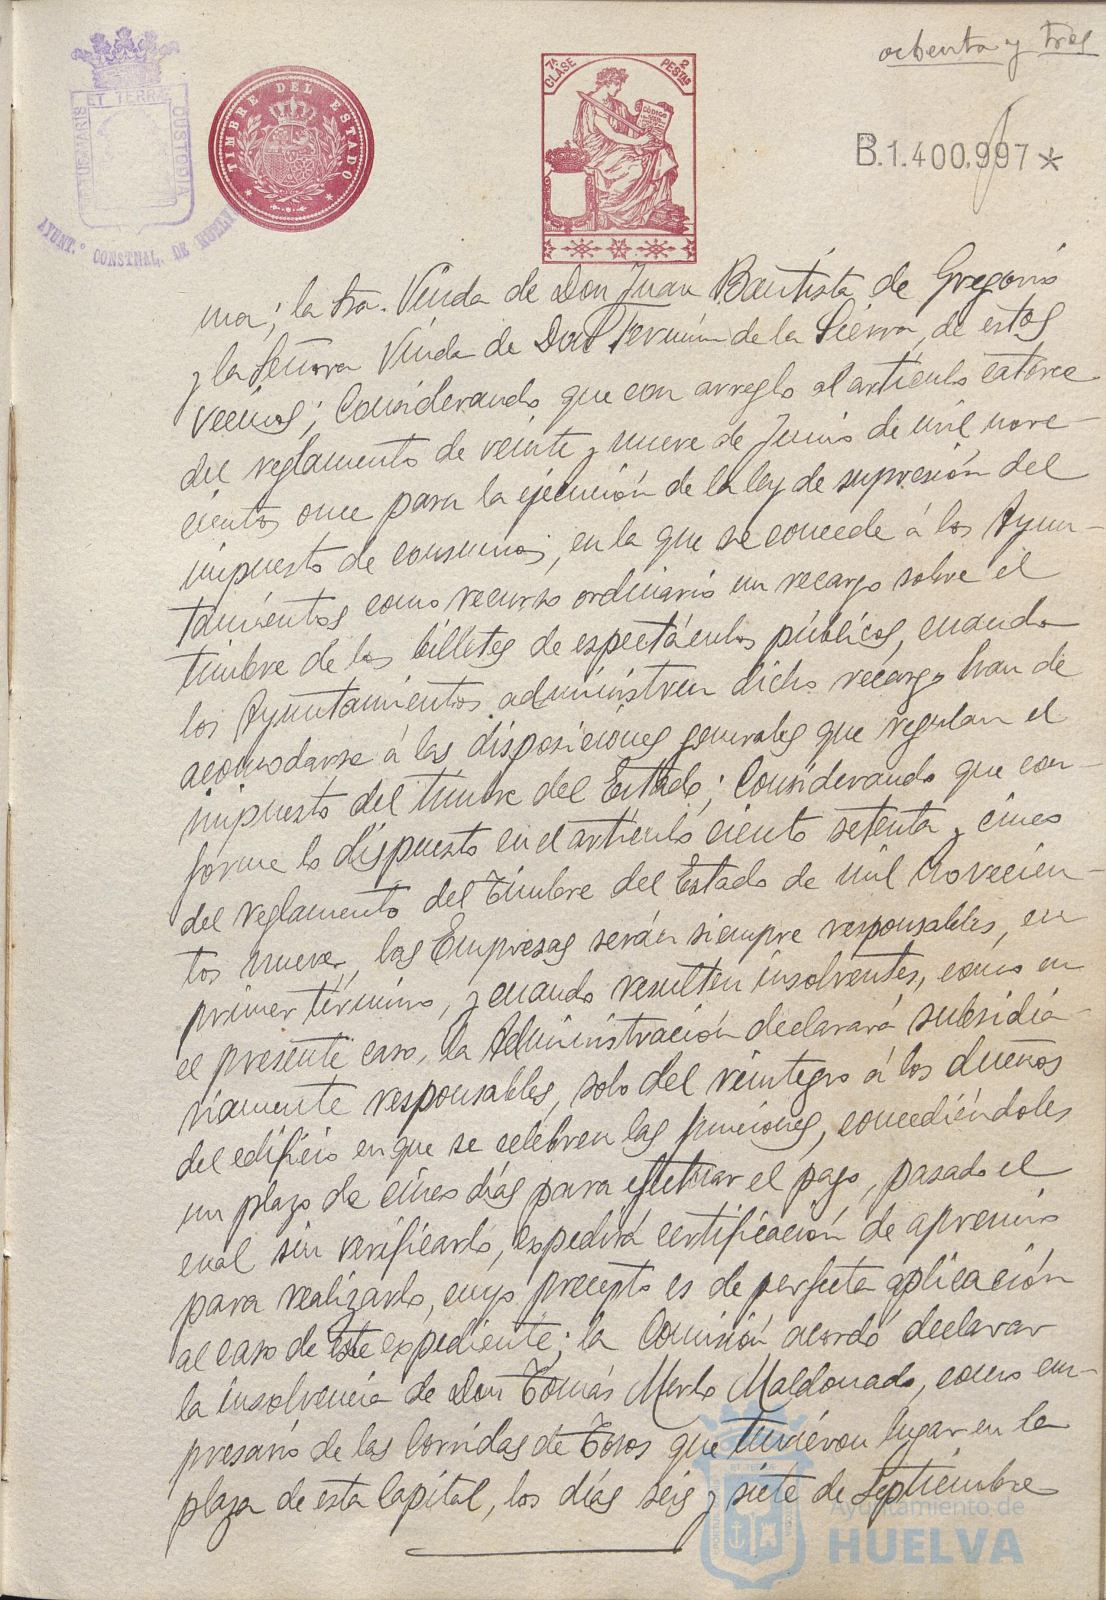 ochenta y tres
ET TERRÆ
PORTUS MARIS
CUSTODIA
AYUNT.º CONSTNAL. DE HUELVA
TIMBRE DEL ESTADO
7ª CLASE
2 PESTAS
CÓDIGO
B.1.400.997*
ma; la Sra. Viuda de Don Juan Bautista de Gregorio
y la Señora Viuda de Don Fermín de la Sierra, de estos
vecinos; Considerando que con arreglo al artículo catorce
del reglamento de veinte y nueve de Junio de mil nove-
cientos once para la ejecución de la ley de supresión del
impuesto de consumos, en la que se concede á los Ayun-
tamientos como recurso ordinario un recargo sobre el
timbre de los billetes de espectáculos públicos, cuando
los Ayuntamientos administren dicho recargo han de
acomodarse á las disposiciones generales que regulan el
impuesto del timbre del Estado; Considerando que con-
forme lo dispuesto en el artículo ciento setenta y cinco
del reglamento del Timbre del Estado de mil novecien-
tos nueve, las Empresas serán siempre responsables, en
primer término, y cuando resulten insolventes, como en
el presente caso, la Administración declarará subsidia-
riamente responsables, solo del reintegro á los dueños
del edificio en que se celebren las funciones, concediéndoles
un plazo de cinco días para efectuar el pago, pasado el
cual sin verificarlo, expedirá certificación de apremio
para realizarlo, cuyo precepto es de perfecta aplicación
al caso de este expediente; la Comisión acordó declarar
la insolvencia de Don Tomás Merlo Maldonado, como em-
presario de las Corridas de Toros que tuvieron lugar en la
plaza de esta Capital, los días seis y siete de Septiembre
Ayuntamiento de
HUELVA